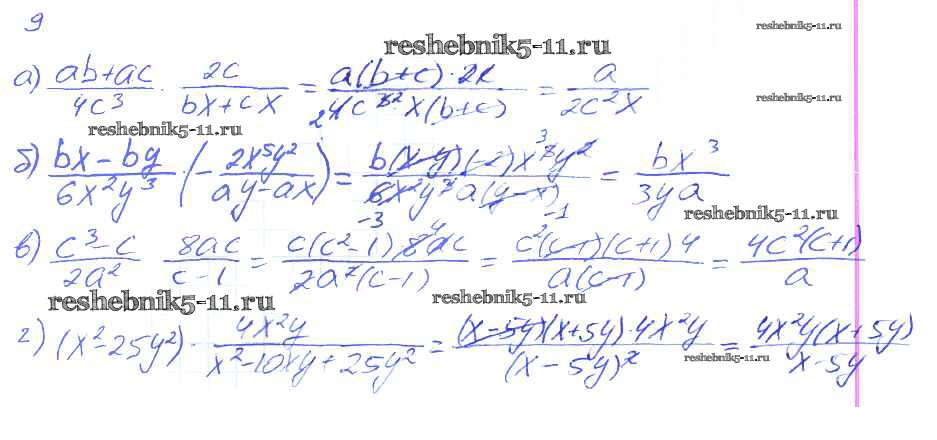 9
reshebnik5-11.ru
reshebnik5-11.ru
а) (ab+ac)/(4c³) · 2c/(bx+cx) = (a(b+c)·2c)/(4c³² x(b+c)) = a/(2c²x)
reshebnik5-11.ru
reshebnik5-11.ru
б) (bx-by)/(6x²y³) · (-(2x⁵y²)/(ay-ax)) = (b(x-y)(-2)x⁵³y²)/(6x²y³a(y-x)) = (bx³)/(3ya)
-3 -1
reshebnik5-11.ru
в) (c³-c)/(2a²) (8ac)/(c-1) = (c(c²-1)8⁴ac)/(2a²(c-1)) = (c²(c-1)(c+1)4)/(a(c-1)) = (4c²(c+1))/a
reshebnik5-11.ru
reshebnik5-11.ru
г) (x²-25y²) · (4x²y)/(x²-10xy+25y²) = ((x-5y)(x+5y)·4x²y)/((x-5y)²) = (4x²y(x+5y))/(x-5y)
reshebnik5-11.ru